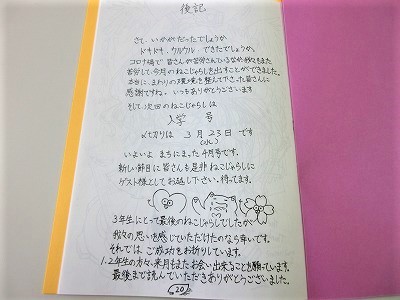 後記
さて、いかがだったでしょうか。
ドキドキ、ウルウル、できたでしょうか。
コロナ禍で皆さんが苦労されているなか、我々もまた
苦労して、今月のねこじゃらしを出すことができました。
本当に、まわりの環境を整えて下さった皆さんに
感謝ですね。いつもありがとうございます
そして、次回のねこじゃらしは
入学 号
〆切りは 3月23日です
(水)
いよいよ まちにまった4月号です。
新しい節目に皆さんも是非ねこじゃらしに
ゲスト様としてお越し下さい。待ってます。
3年生にとって最後のねこじゃらしでしたが
我々の思いを感じていただけたのなら幸いです。
それでは、ご成功をお祈りしています。
1.2年生の方々、来月もまたお会い出来ることを願っています。
最後まで読んでいただきありがとうございました。
20